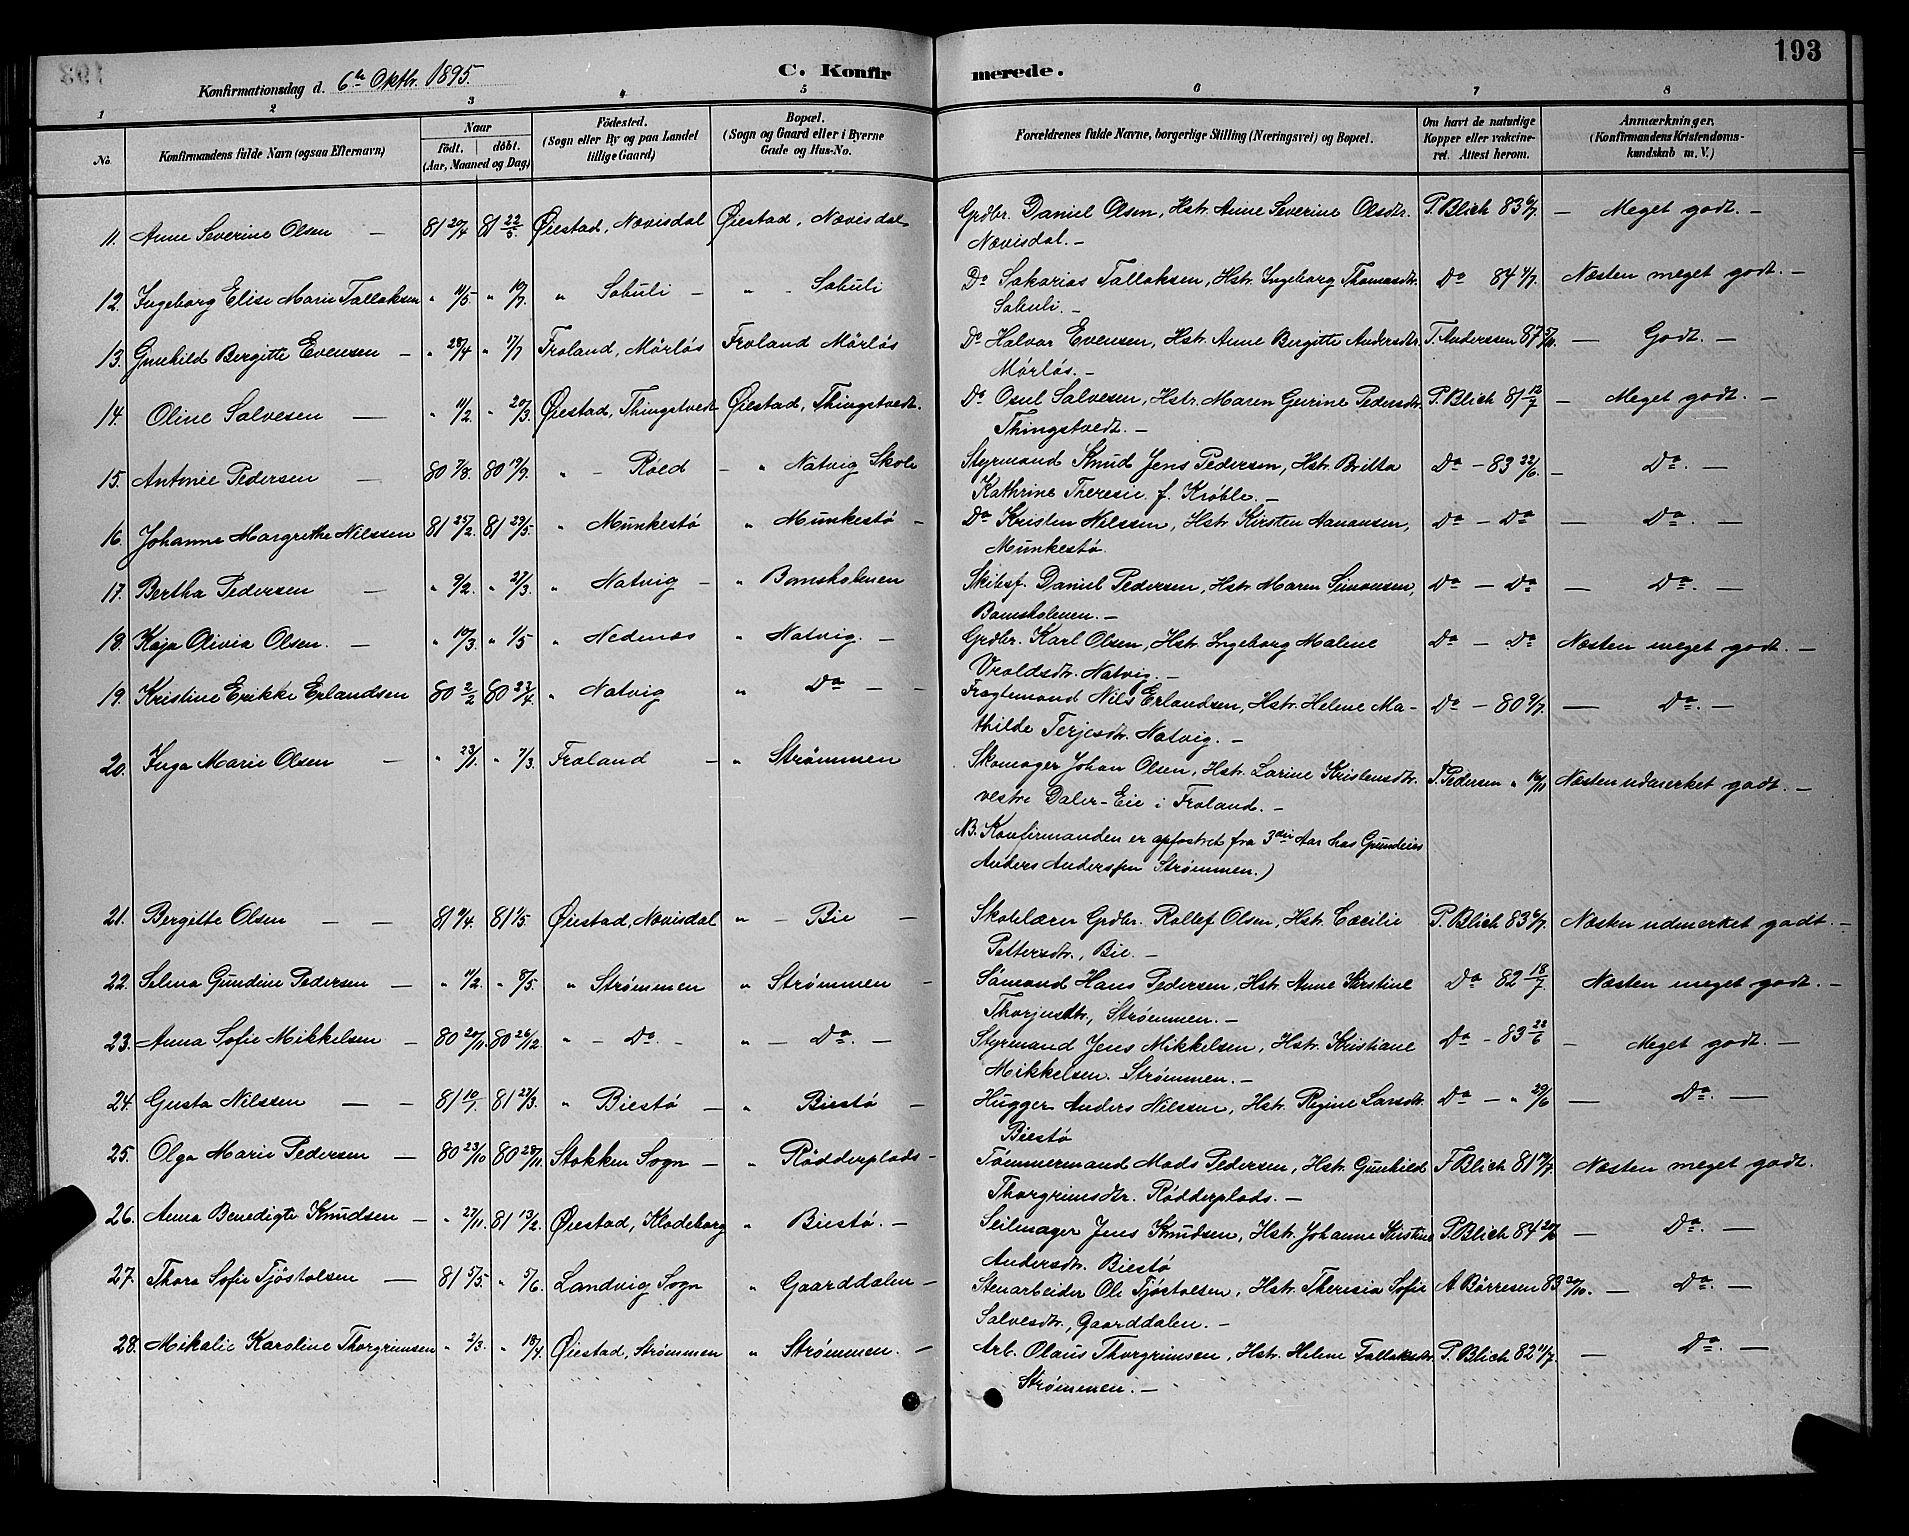 193
Konfirmationsdag d. 6te Oktbr. 1895.
C. Konfir merede.
1 2 3 4 5 6 7 8
No.
Konfirmandens fulde Navn (ogsaa Efternavn)
Naar
födt. döbt.
(Aar, Maaned og Dag)
Födested.
(Sogn eller By og paa Landet
tillige Gaard)
Bopæl.
(Sogn og Gaard eller i Byerne
Gade og Hus-No.
Forældrenes fulde Navne, borgerlige Stilling (Næringsvei) og Bopæl.
Om havt de naturlige
Kopper eller vakcine-
ret. Attest herom.
Anmærkninger.
(Konfirmandens Kristendoms-
kundskab m. V.)
11. Anne Severine Olsen — 81 20/4 81 22/5 Øiestad, Nævisdal Øiestad, Nævisdal Grdbr. Daniel Olsen, Hstr. Anne Severine Olsdtr. P. Blich 83 6/7 — Meget godt. —
Nævisdal. —
12. Ingeborg Elise Marie Tallaksen " 11/5 " 10/7 " Sabuli — " - Sabuli Do Sakarias Tallaksen, Hstr. Ingeborg Thomasdtr. Do 84 4/7. Næsten meget godt. —
Sabuli. —
13. Gunhild Bergitte Evensen — " 28/4 " 17/7 Froland, Mörlös Froland Mörlös Do Halvor Evensen, Hstr. Anne Bergitte Andersdtr. T. Anderssen 87 — Godt. —
Mörlös. —
14. Oline Salvesen — " 11/2 " 20/3 Øiestad, Thingstvedt Øiestad, Thingstvedt. Do Osul Salvesen, Hstr. Maren Gurine Pedersdtr. P. Blich 81 12/7 — Meget godt. —
Thingstvedt. —
15. Antonie Pedersen — 80 7/8. 80 19/9. " - Røed — " Natvig Skole Styrmand Knud Jens Pedersen, Hstr. Britta Do — 83 22/6. — Do. —
Kathrine Theresie f. Krøble. —
16. Johanne Margrethe Nilssen 81 25/2. 81 29/5. " Munkestø " Munkestø — Do Kristen Nilssen, Hstr. Kirsten Aanansen, Do — Do — Do. —
Munkestø.
17. Bertha Pedersen — " 9/2. " 27/3. " Natvig — " Bomsholmen Skibsf. Daniel Pedersen, Hstr. Maren Simonsen, Do — Do — Do. —
Bomsholmen. —
18. Kaja Olivia Olsen. — " 10/3 " 1/5 " Nedenæs " Natvig. — Grdbr. Karl Olsen, Hstr. Ingeborg Malene Do — Do Næsten meget godt. —
Vroldsdtr. Natvig. —
19. Kristine Erikke Erlandsen 80 2/2 80 22/4. " Natvig " Do — — Fragtemand Nils Erlandsen, Hstr. Helene Ma- Do — 80 9/7. — Do. —
thilde Terjesdtr. Natvig. —
20. Inga Marie Olsen — " 23/1. " 7/3. Froland — " Strømmen Skomager Johan Olsen, Hstr. Larine Kristensdtr. P. Pedersen " 16/11 Næsten udmerket godt. —
vestre Daler-Eie i Froland. —
NB. Konfirmanden er opfostret fra 3die Aar hos Gaardeier
Anders Anderssen Strømmen.)
21. Bergitte Olsen — — 81 9/4. 81 1/5. Øiestad, Nævisdal " - Bie — Skolelærer Grdbr. Rollef Olsen, Hstr. Cæcilie P. Blich 83 6/7. Næsten udmerket godt. —
Pettersdtr., Bie. —
22. Selma Gundine Pedersen — " 11/2. " 8/5. " Strømmen " Strømmen — Sømand Hans Pedersen, Hstr. Anne Kirstine Do 82 18/7. Næsten meget godt. —
Thorjusdtr., Strømmen. —
23. Anna Sofie Mikkelsen — 80 20/11. 80 26/12 " - Do. - " - Do. — Styrmand Jens Mikkelsen, Hstr. Kristiane Do — 83 22/6 — Meget godt. —
Mikkelsen. Strømmen. —
24. Gusta Nilssen — — 81 10/1. 81 27/3. " Biestø — " Biestø — Hugger Anders Nilssen, Hstr. Regine Larsdtr. Do — " 29/6 — Do. —
Biestø
25. Olga Marie Pedersen — 80 23/10 80 28/11. Stokken Sogn — " Rødderplads — Tømmermand Mads Pedersen, Hstr. Gunhild F. Blich 81 19/7. Næsten meget godt.
Thorgrimsdtr. Rødderplads. —
26. Anna Benedigte Knudsen — " 27/11. 81 13/2. Øiestad, Klodeborg " Biestø. — Seilmager Jens Knudsen, Hstr. Johanne Kirstine P. Blich 84 — Do. —
Andersdtr. Biestø
27. Thora Sofie Tjöstolsen — 81 5/5. " 5/6. Landvig Sogn " Gaarddalen — Stenarbeider Ole Tjöstolsen, Hstr. Theresia Sofie A Børresen 83 20/10. — Do. —
Salvesdtr., Gaarddalen. —
28. Mikalie Karoline Thorgrimsen " 2/3. " 18/4. Øiestad, Strømmen " Strømmen. — Arb. Olaus Thorgrimsen, Hstr. Helene Tallaksdtr. P. Blich 82 11/7. — Do. —
Strømmen. —